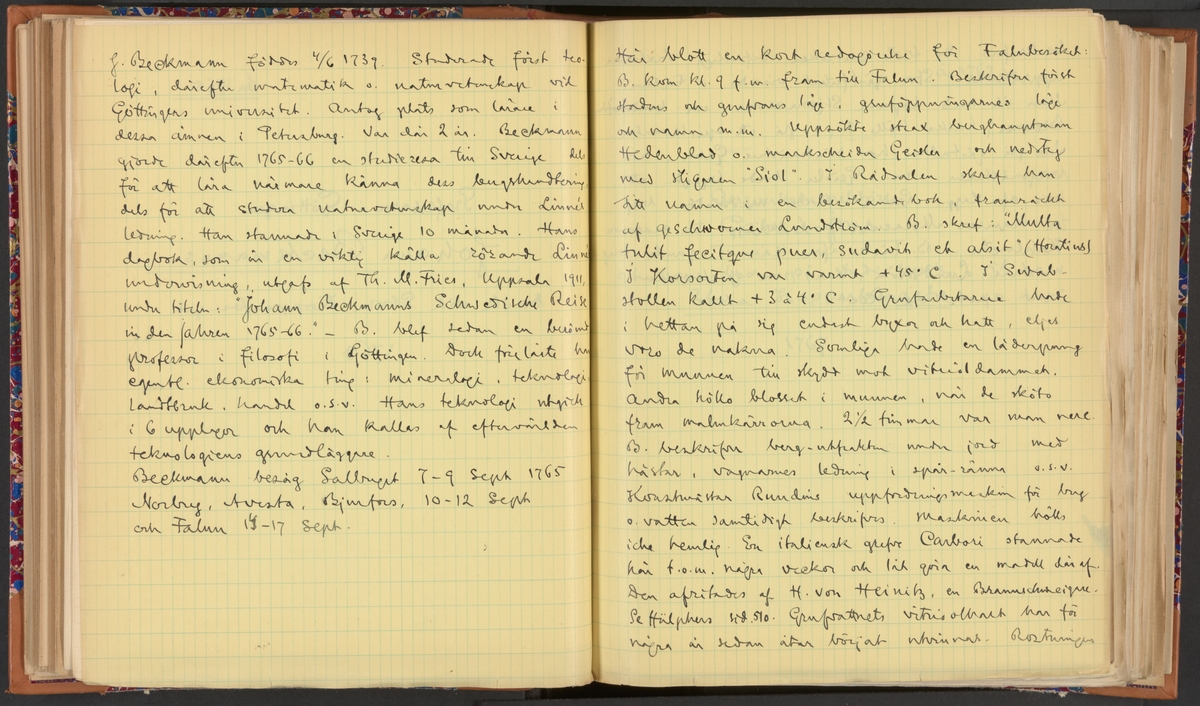 J. Beckmann föddes 4/6 1739. Studerade först teo-
logi, därefter matematik o. naturvetenskap vid
Göttingens universitet. Antog plats som lärare i
dessa ämnen i Petersburg. Var där 2 år. Beckmann
gjorde därefter 1765-66 en studieresa till Sverige dels
för att lära närmare känna dess bergshandtering
dels för att studera naturvetenskap under Linnés
ledning. Han stannade i Sverige 10 månader. Hans
dagbok, som är en viktig källa rörande Linnés
undervisning, utgafs af Th. M. Fries, Uppsala 1911,
under titeln: "Johann Beckmanns Schwedische Reise
in den Jahren 1765-66." – B. blef sedan en berömd
professor i filosofi i Göttingen. Dock föreläste han
egentl. ekonomiska ting: mineralogi, teknologi,
landtbruk, handel o.s.v. Hans teknologi utgick
i 6 upplagor och han kallas af eftervärlden
teknologiens grundläggare.
Beckmann besåg Salberget 7-9 Sept 1765
Norberg, Avesta, Bjurfors, 10-12 Sept
och Falun 14-17 Sept.
Här blott en kort redogörelse för Falubesöket:
B. kom kl. 9 f.m. fram till Falun. Beskrifver först
stadens och grufvans läge, gruföppningarnes läge
och namn m.m. Uppsökte strax berghauptman
Hedenblad o. markscheider Geisler och nedsteg
med stigaren "Siol". I Rådsalen skref han
sitt namn i en besökandebok, framräckt
af geschworner Lundström. B. skref: "Multa
tulit fecitque puer, sudavit et alsit" (Horatius)
I Korsorten var varmt +45° C. I Svab-
stollen kallt +3 à 4° C. Grufarbetarne hade
i hettan på sig endast byxor och hatt, eljes
voro de nakna. Somliga hade en läderpung
för munnen till skydd mot vitrioldammet.
Andra höllo blosset i munnen, när de sköto
fram malmkärrorna. 2 1/2 timmar var man nere.
B. beskrifver berg-utfrakten under jord med
hästar, vagnarnes ledning i spår-ränna o.s.v.
Konstmästar Rundins uppfordringsmaskin för berg
o. vatten samtidigt beskrifves. Maskinen hölls
icke hemlig. En italiensk grefve Carburi stannade
här t.o.m. några veckor och lät göra en modell däraf.
Den afritades af H. von Heinitz, en Braunschweigare.
Se Hülphers sid. 510. Grufvattnets vitriolhalt har för
några år sedan åter börjat utvinnas. Rostningen